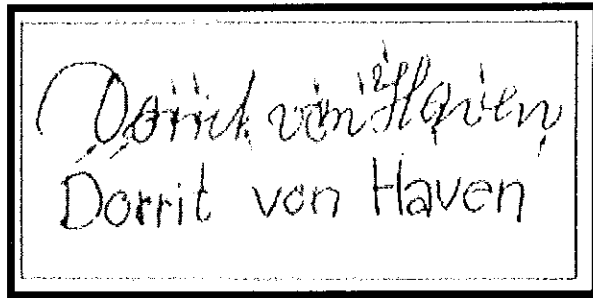 Dorrit von Haven
Dorrit von Haven